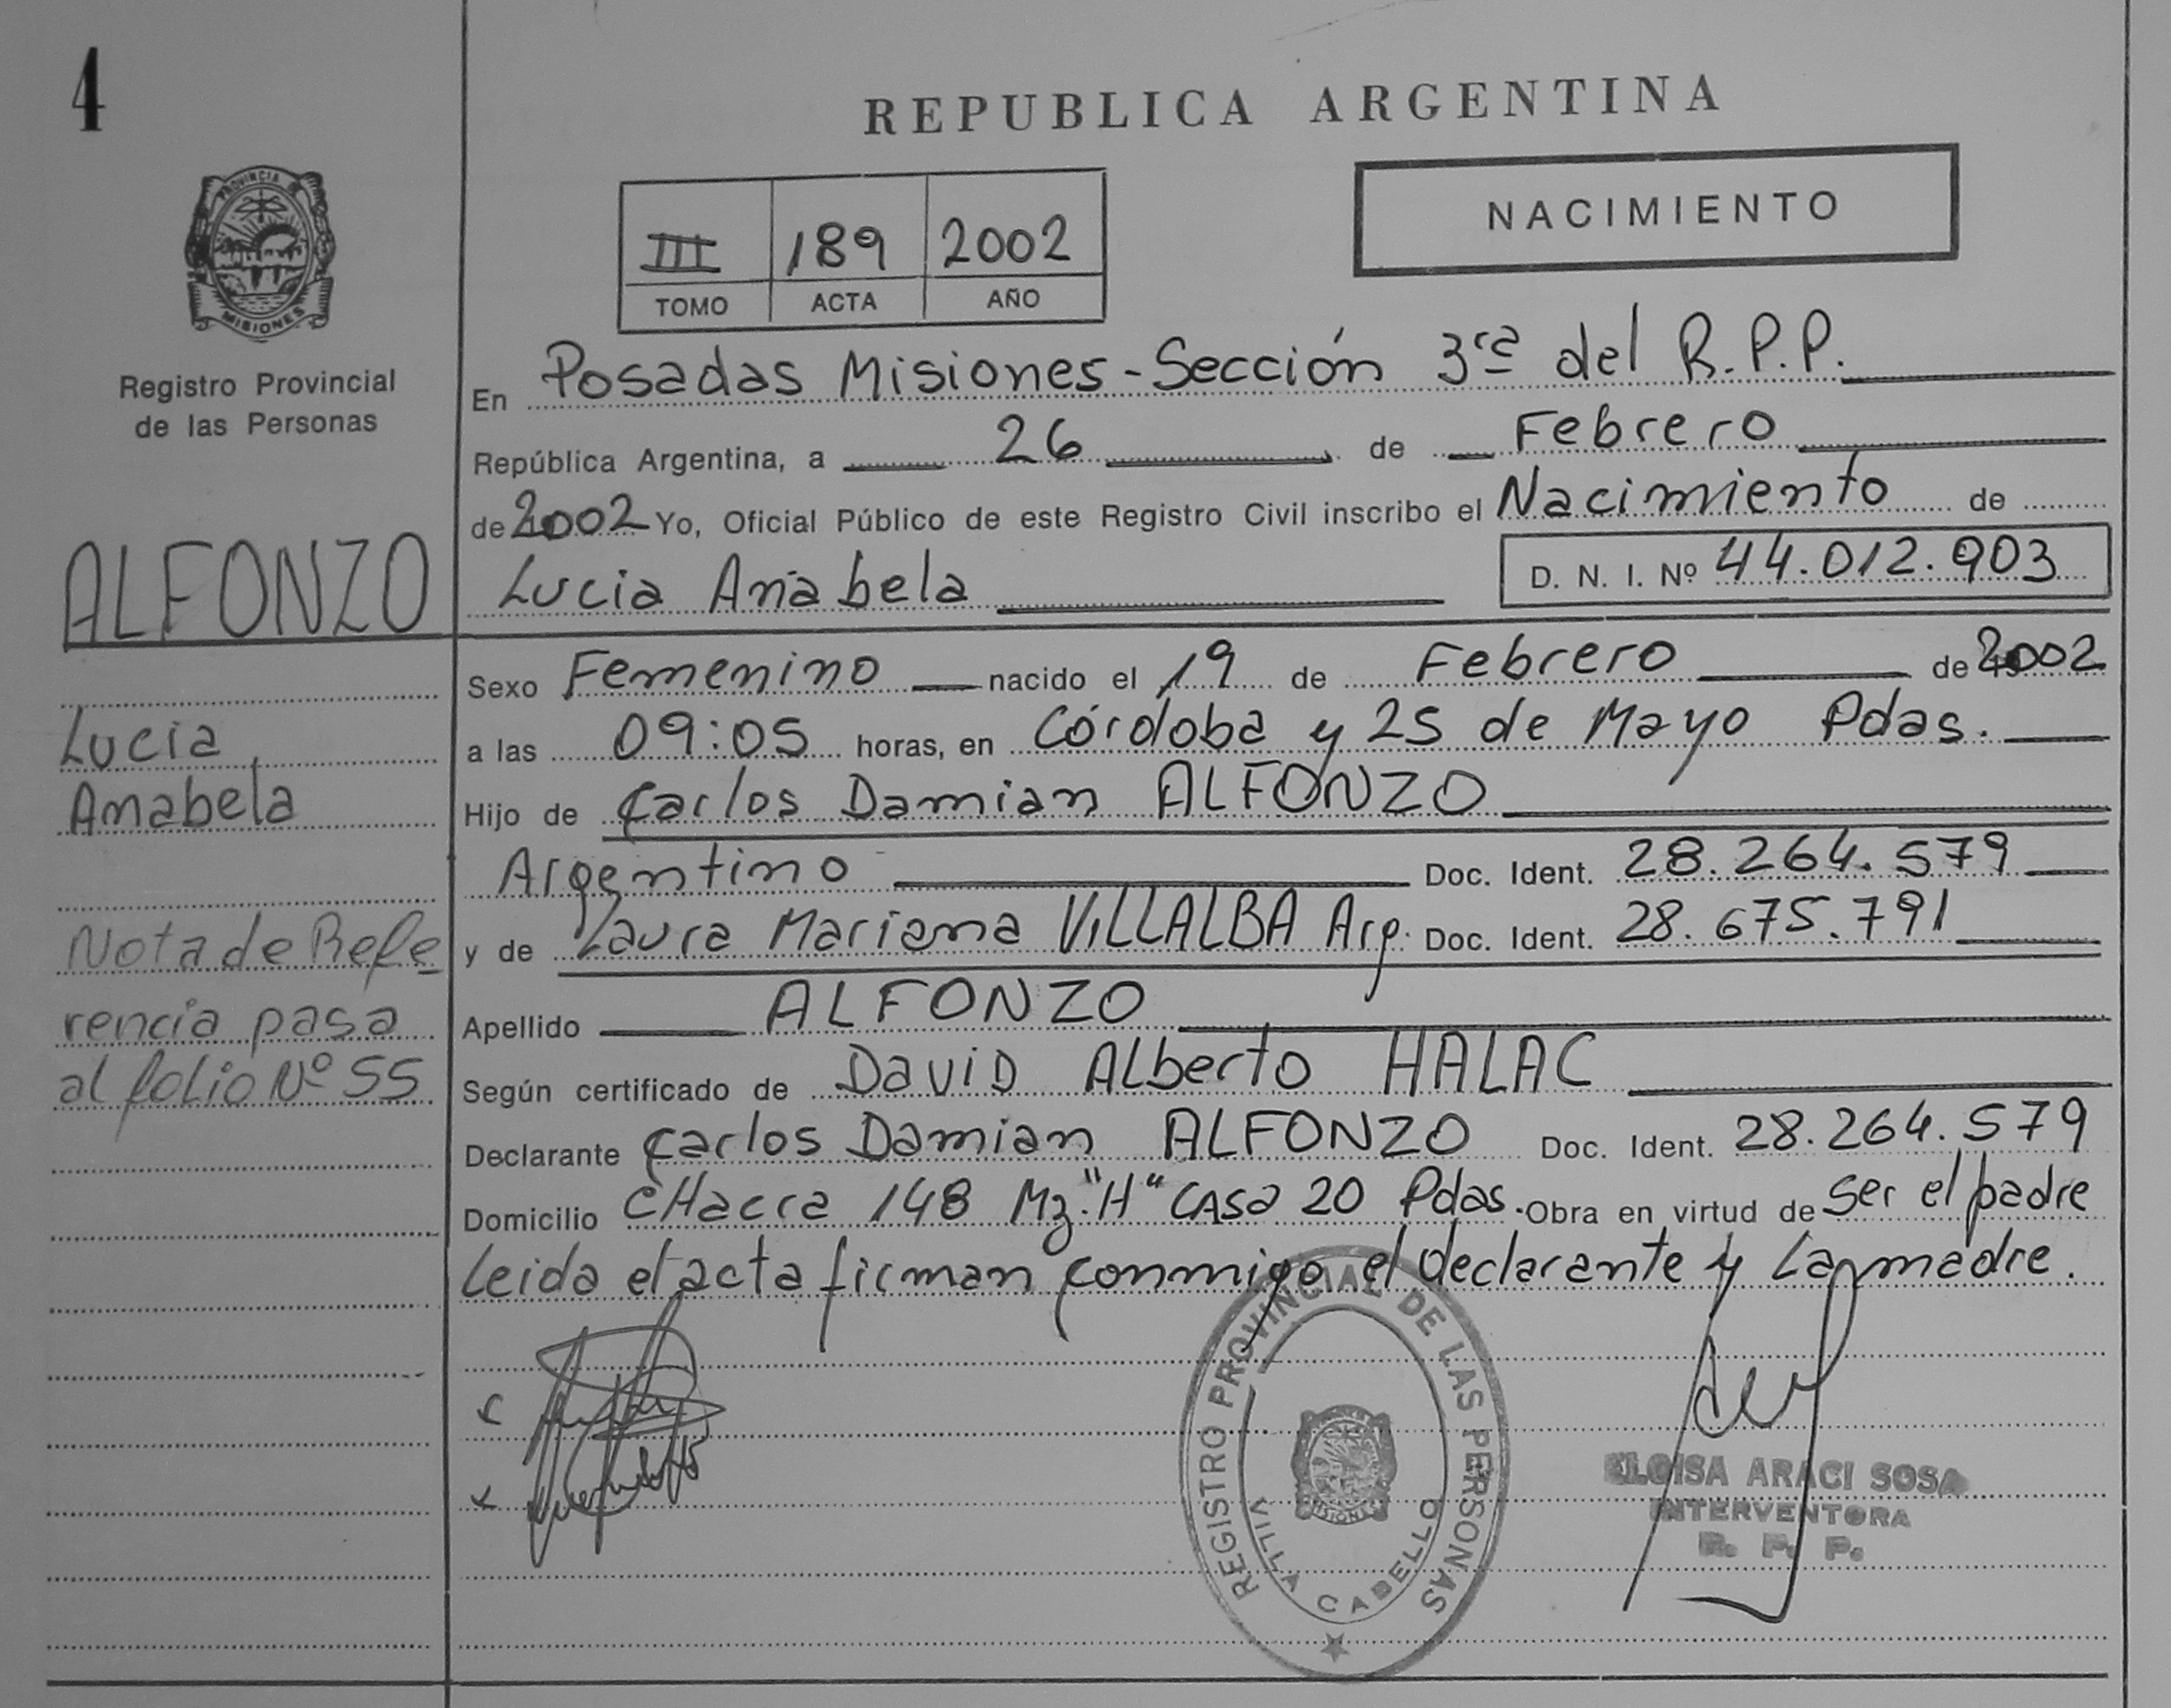 4
REPUBLICA ARGENTINA
PROVINCIA DE
MISIONES
Registro Provincial
de las Personas
III 189 2002
TOMO ACTA AÑO
NACIMIENTO
En Posadas Misiones-Sección 3ra del R.P.P.
República Argentina, a 26 de Febrero
de 2002 Yo, Oficial Público de este Registro Civil inscribo el Nacimiento de
Lucia Anabela D. N. I. Nº 44.012.903
ALFONZO
Lucia
Anabela
Nota de Refe
rencia pasa
al folio Nº 55
Sexo Femenino nacido el 19 de Febrero de 2002
a las 09:05 horas, en Córdoba y 25 de Mayo Pdas.
Hijo de Carlos Damian ALFONZO
Argentino Doc. Ident. 28.264.579
y de Laura Mariana VILLALBA Arg. Doc. Ident. 28.675.791
Apellido ALFONZO
Según certificado de DaviD Alberto HALAC
Declarante Carlos Damian ALFONZO Doc. Ident. 28.264.579
Domicilio CHacra 148 Mz."H" CASa 20 Pdas. Obra en virtud de ser el padre
Leida el acta firman conmigo el declarante y La madre.
REGISTRO PROVINCIAL DE LAS PERSONAS
MISIONES
VILLA CABELLO
ELOISA ARACI SOSA
INTERVENTORA
R. P. P.